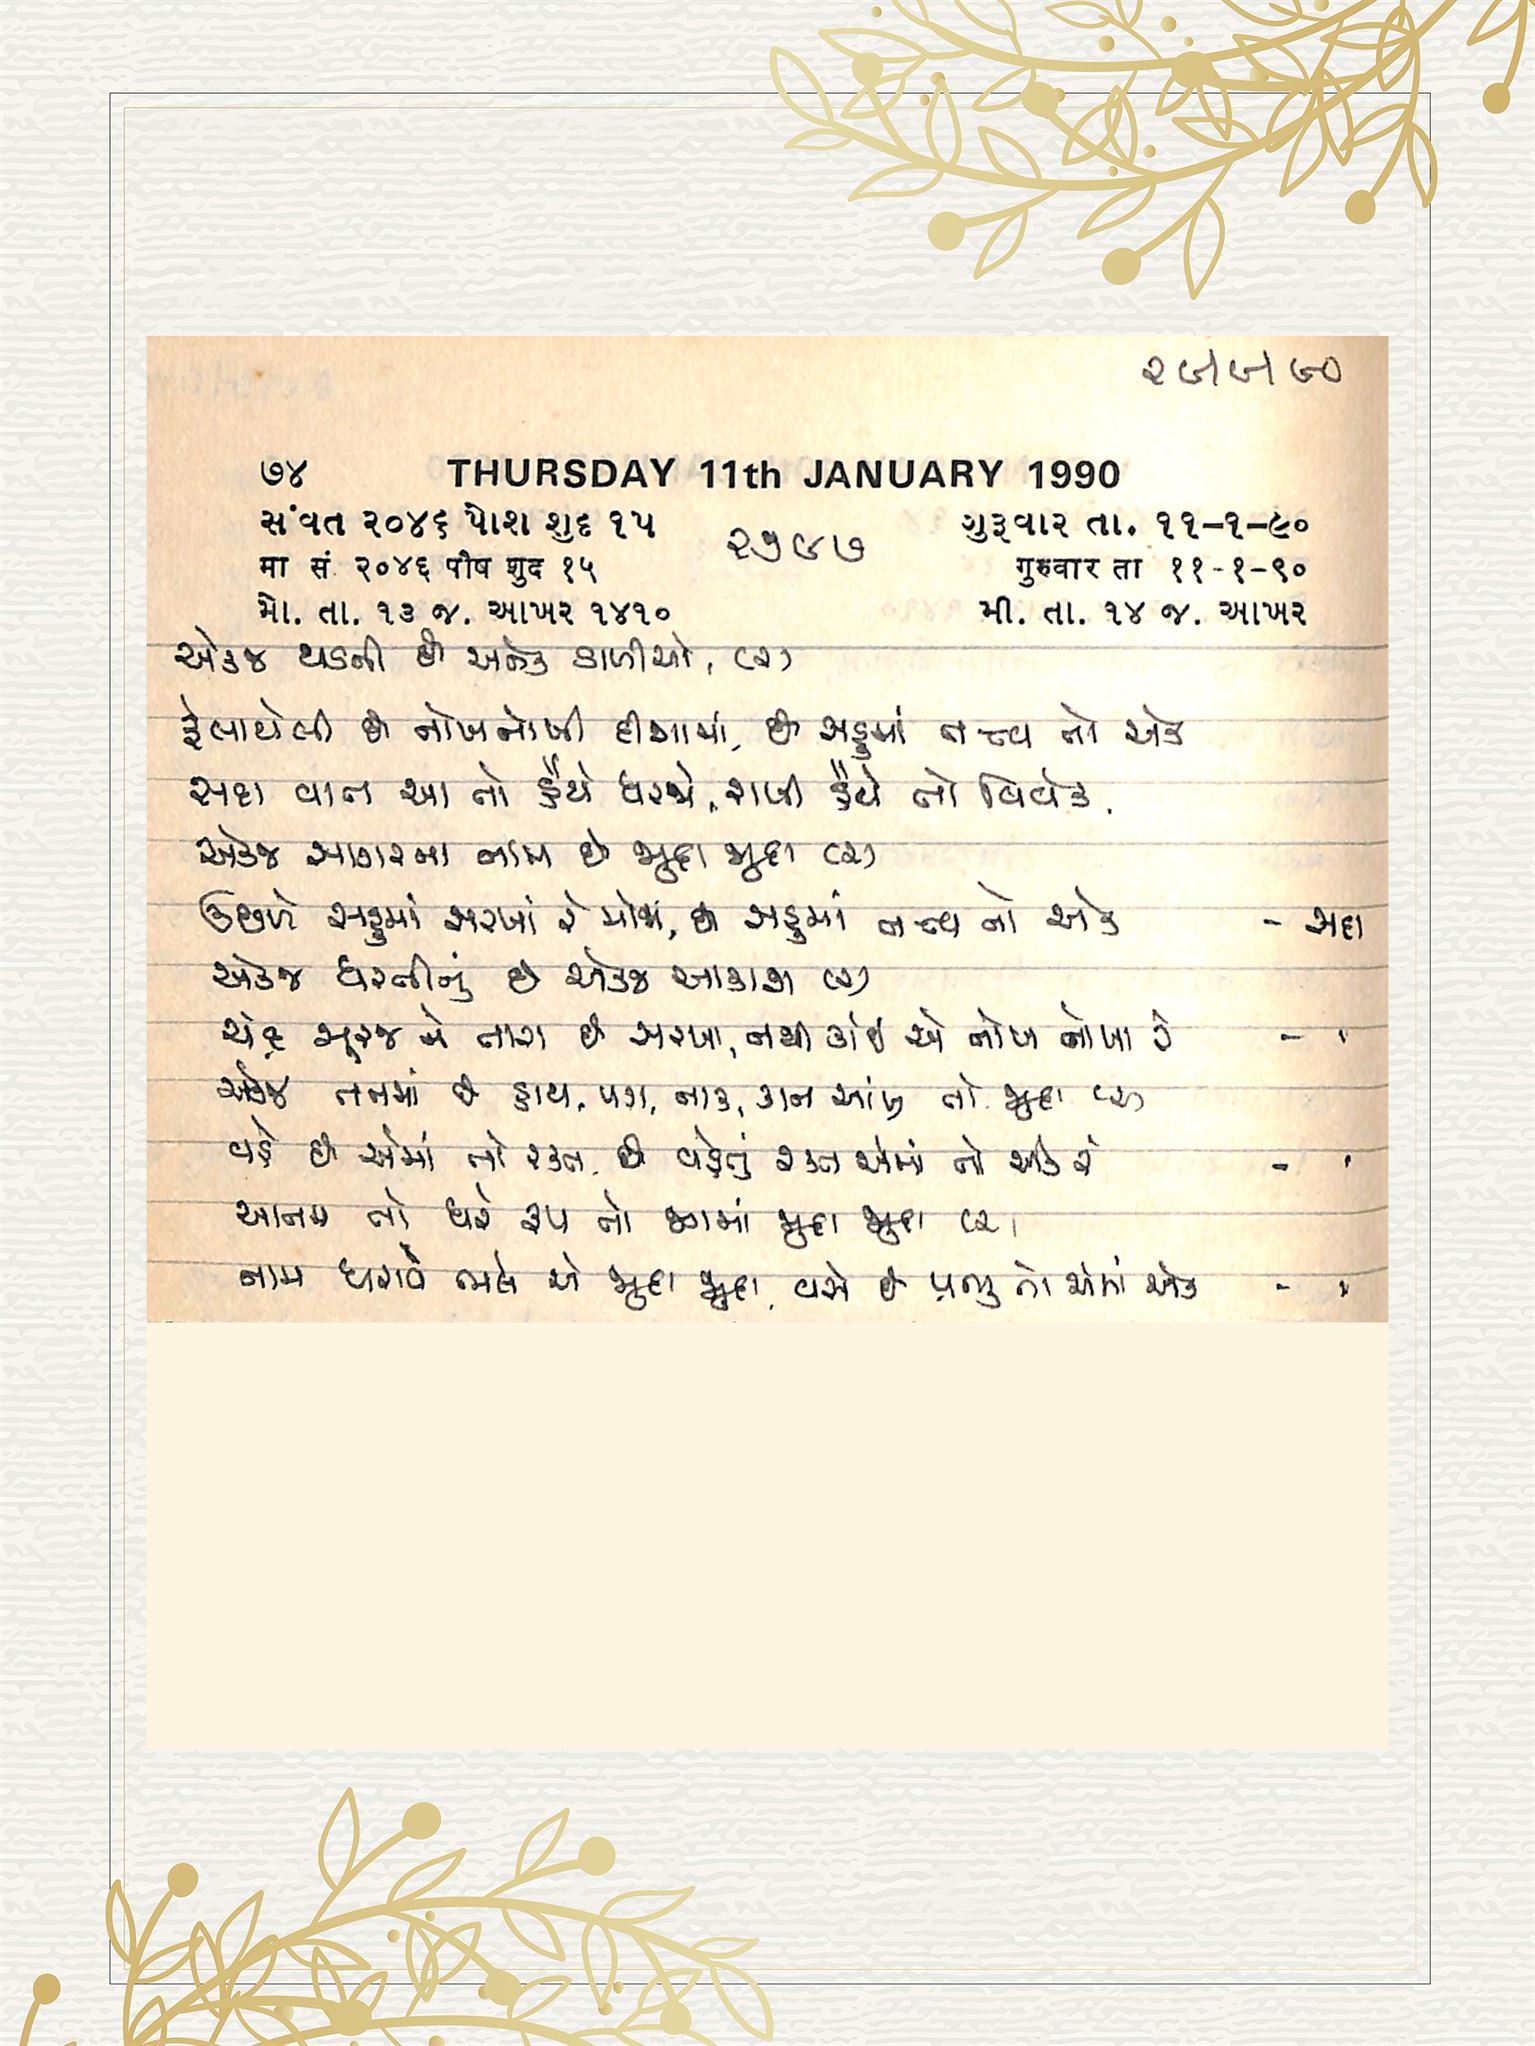 ૨૯/૯/૯૦
૭૪ THURSDAY 11th JANUARY 1990
સંવત ૨૦૪૬ પોશ શુદ ૧૫ ગુરૂવાર તા. ૧૧–૧–૯૦
૨૭૯૭
मा सं. २०४६ पौष शुद १५ गुरुवार ता ११-१-९०
મો. તા. ૧૩ જ. આખર ૧૪૧૦ મી. તા. ૧૪ જ. આખર
એકજ થડની છે અનેક ડાળીયો, (૨)
ફેલાયેલી છે નોખનોખી દીશામાં, છે સહુમાં તત્ત્વ તો એક
સદા વાત આ તો હૈયે ધરજે, રાખી હૈયે તો વિવેક.
એકજ સાગરના નામ છે જુદા જુદા (૨)
ઉછળે સહુમાં સરખાં રે મોજાં, છે સહુમાં તત્ત્વ તો એક - સદા
એકજ ધરતીનું છે એકજ આકાશ (૨)
ચંદ્ર સૂરજ ને તારા છે સરખા, નથી કાંઈ એ નોખ નોખા રે - "
એકજ તનમાં છે હાથ, પગ, નાક, કાન આંખ તો જુદા (૨)
વહે છે એમાં તો રક્ત, છે વહેતું રક્ત એમાં તો એક રે - "
આતમ તો ધરે રૂપ તો જગમાં જુદા જુદા (૨)
નામ ધરાવે ભલે એ જુદા જુદા, વસે છે પ્રભુ તો એમાં એક - "